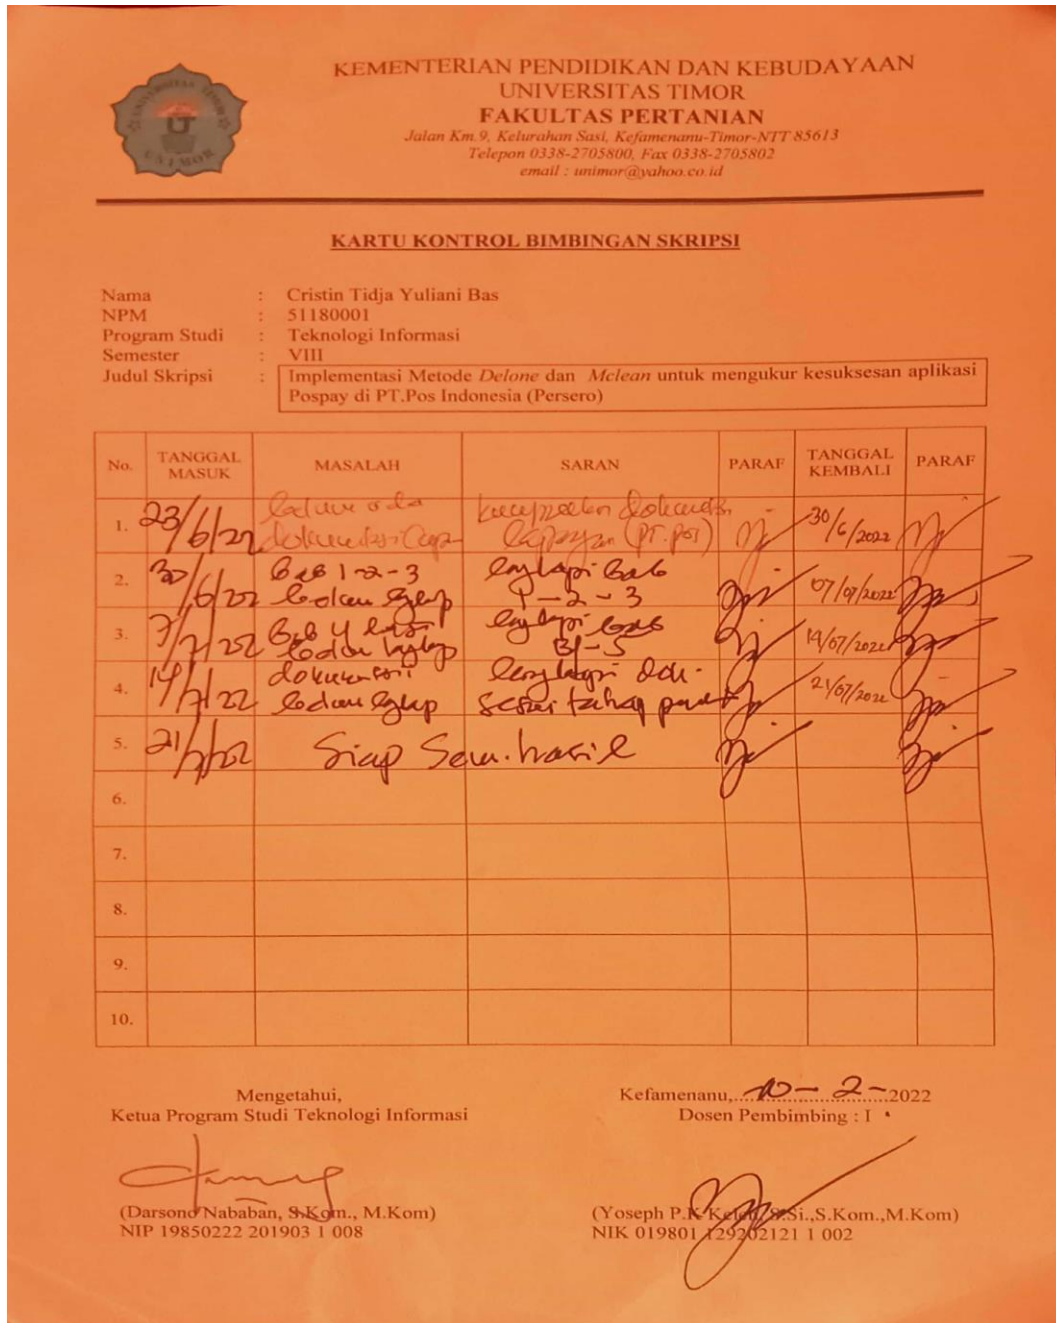 KEMENTERIAN PENDIDIKAN DAN KEBUDAYAAN
UNIVERSITAS TIMOR
FAKULTAS PERTANIAN
Jalan Km.9, Kelurahan Sasi, Kefamenanu-Timor-NTT 85613
Telepon 0338-2705800, Fax 0338-2705802
email : unimor@yahoo.co.id
UNIVERSITAS TIMOR
UNIMOR
KARTU KONTROL BIMBINGAN SKRIPSI
Nama : Cristin Tidja Yuliani Bas
NPM : 51180001
Program Studi : Teknologi Informasi
Semester : VIII
Judul Skripsi : Implementasi Metode Delone dan Mclean untuk mengukur kesuksesan aplikasi
Pospay di PT.Pos Indonesia (Persero)
No. TANGGAL MASUK MASALAH SARAN PARAF TANGGAL KEMBALI PARAF
1. 23/6/22 (PT.Pos) 30/6/2022
2. 30/6/22 Bab 1-2-3 lengkapi Bab 1-2-3 07/07/2022
3. 7/7/22 Bab lengkapi bab 14/07/2022
4. 14/7/22 dokumentasi lengkapi 21/07/2022
5. 21/7/22 Siap Sem. hasil
6.
7.
8.
9.
10.
Mengetahui,
Ketua Program Studi Teknologi Informasi
(Darsono Nababan, S.Kom., M.Kom)
NIP 19850222 201903 1 008
Kefamenanu, 10-2-2022
Dosen Pembimbing : I
(Yoseph P.K S.Si.,S.Kom.,M.Kom)
NIK 019801 129202121 1 002